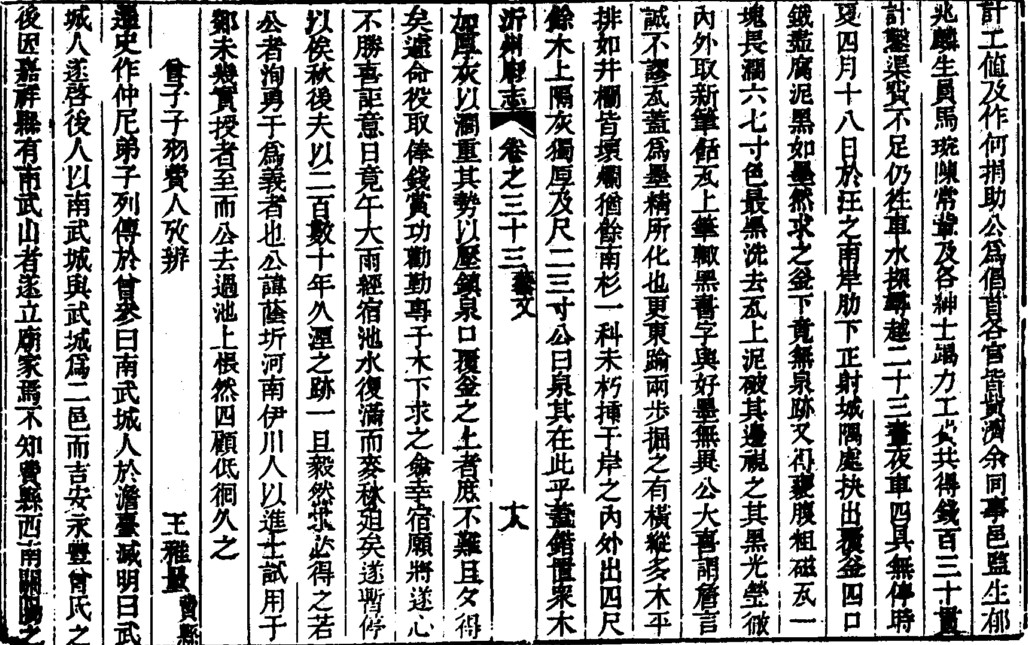 計工値及作何捐助公爲倡首各官皆貲濟余同事邑監生郁
兆麟生員馬琬陳常肇及各紳士竭力工貲共得錢百三十貫
計鑿渠貲不足仍徃車水探尋越二十三晝夜車四具無停時
夏四月十八日於汪之南岸肋下正射城隅處抉出覆釜四口
鐵盡腐泥黑如墨然求之釜下竟無泉跡又得甕腹粗磁瓦一
塊畏濶六七寸色最黑洗去瓦上泥破其邊視之其黑光瑩徹
內外取新筆餂瓦上筆輙黑書字與好墨無異公大喜謂詹言
誠不謬瓦蓋爲墨精所化也更東踰兩歩掘之有橫縱多木平
排如井欄皆壞爛猶餘南杉一科未朽揷于岸之內外出四尺
餘木上隔灰獨厚及尺二三寸公曰泉其在此乎蓋錯置衆木
沂州府志 卷之三十三 藝文 十八
加厚灰以濶重其勢以壓鎮泉口覆釜之上者庶不難且夕得
矣遽命役取俸錢賞功勸勤專于木下求之僉幸宿願將遂心
不勝喜詎意日竟午大雨經宿池水復滿而麥秋廹矣遂暫停
以俟秋後夫以二百數十年久湮之跡一旦毅然求必得之若
公者洵勇于爲義者也公諱蔭圻河南伊川人以進士試用于
鄒未幾實授者至而公去過池上悵然四顧低徊久之
曾子子羽費人攷辨 王雅量 費縣
遷史作仲尼弟子列傳於曾參曰南武城人於澹臺滅明曰武
城人遂啓後人以南武城與武城爲二邑而吉安永豐曾氏之
後因嘉祥縣有南武山者遂立廟家焉不知費縣西南關陽之